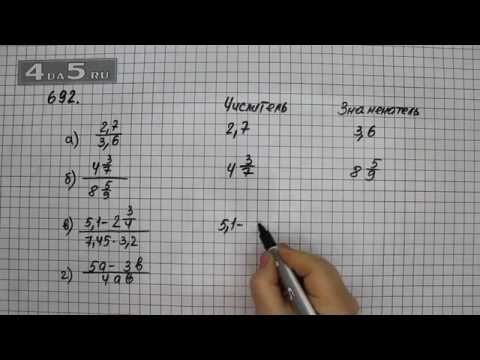 4 DA 5.RU
692.
Числитель Знаменатель
а) 2,7/3,6 2,7 3,6
б) 4 3/7 / 8 5/9 4 3/7 8 5/9
в) 5,1 - 2 3/4 / 7,45 - 3,2 5,1 -
г) 5а - 3в / 4ав